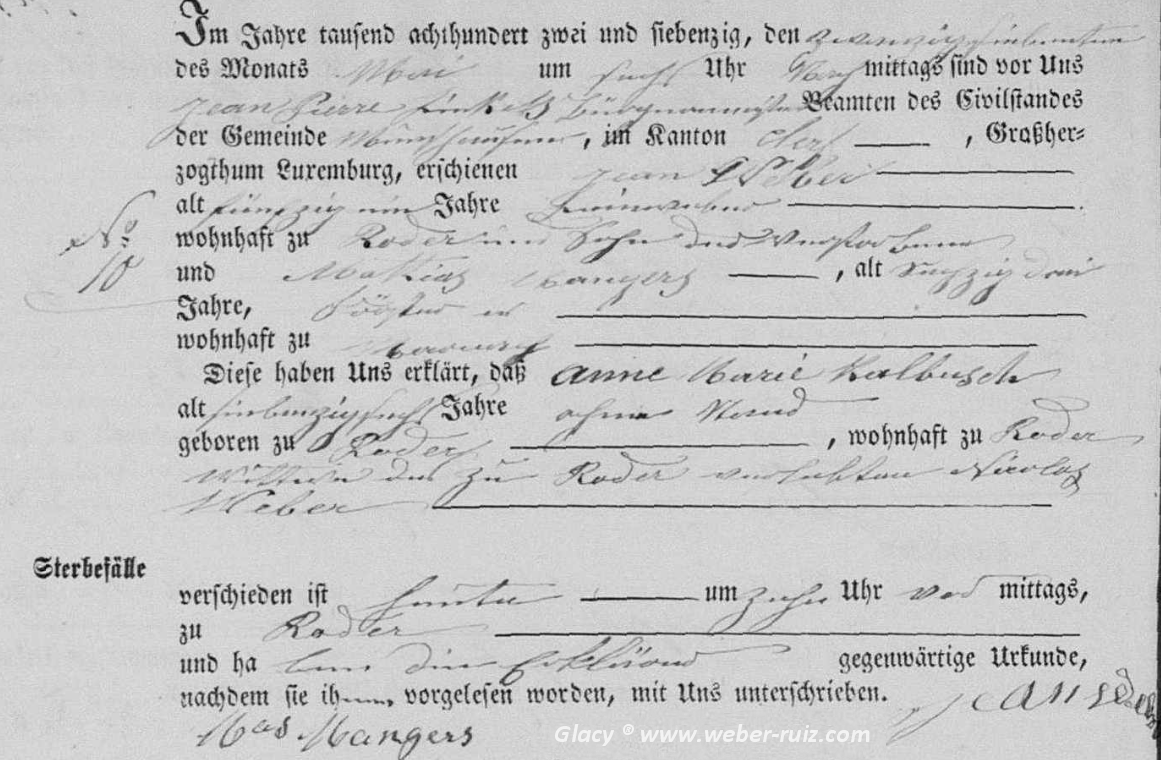 Im Jahre tausend achthundert zwei und siebenzig, den zwanzigsiebenten
des Monats Mai um sechs Uhr Nach mittags sind vor Uns
Jean Pierre Bürgermeister Beamten des Civilstandes
der Gemeinde Munshausen, im Kanton Clerf, Großher=
zogthum Luxemburg, erschienen Jean Weber
alt fünfzig ein Jahre Leinweber
wohnhaft zu Roder und Sohn der Verstorbenen
No 10
und Mathias Mangers, alt sechzig drei
Jahre,
wohnhaft zu Marnach
Diese haben Uns erklärt, daß Anne Marie Kalbusch
alt siebenzig sechs Jahre ohne Stand
geboren zu Roder, wohnhaft zu Roder
Wittwe des zu Roder verlebten Nicolas
Weber
Sterbefälle
verschieden ist heute um zehn Uhr vor mittags,
zu Roder
und ha ben die Erklärer gegenwärtige Urkunde,
nachdem sie ihnen vorgelesen worden, mit Uns unterschrieben.
Mas Mangers
Glacy ® www.weber-ruiz.com